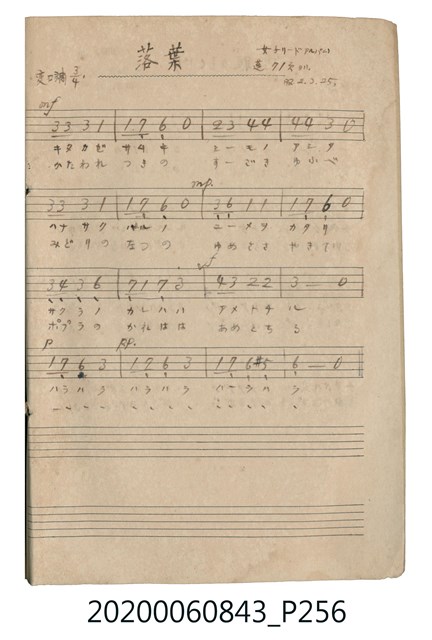 落葉
変ロ調 3/4
92.2.3.25.
mf
3 3 3 1 | 1 7 6 0 | 2 3 4 4 | 4 4 3 0
キタカゼ サムキ
かたわれ つきの すーごき ゆふべ
mp.
3 3 3 1 | 1 7 6 0 | 3 6 1 1 | 1 7 6 0
ハナサク ハルノ ユーメヲ カタリ
みどりの なつの ゆめさへ やきて
mf
3 4 3 6 | 7 1 7 3 | 4 3 2 2 | 3 — 0
サクラノ カレハハ アメトチル
ポプラの かれはは あめとちる
p pp.
1 7 6 3 | 1 7 6 3 | 1 7 6 #5 | 6 — 0
ハラハラ ハラハラ ハーラハラ
20200060843_P256